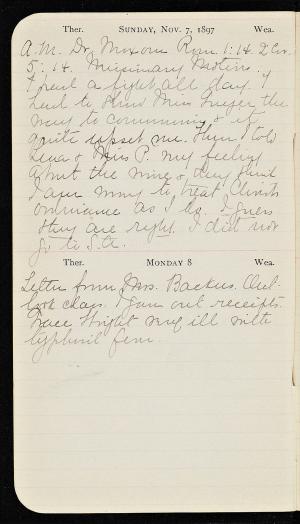 Ther. SUNDAY, NOV. 7, 1897 Wea.
A.M. Dr. Moxom Rom 1:14. 2 Cor.
5:14. Missionary Motives.
I had a fight all day. I
had to show Miss the
way to communion & it
quite upset me. Then I told
Lena & Miss P. my feeling
about the wine & they think
I am wrong to treat Christ's
ordinance as I do. I guess
they are right. I did not
go to S.A.
Ther. MONDAY 8 Wea.
Letter from Mrs. Backus.
class. I gave out receipts.
Grace Wright very ill with
typhoid fever.